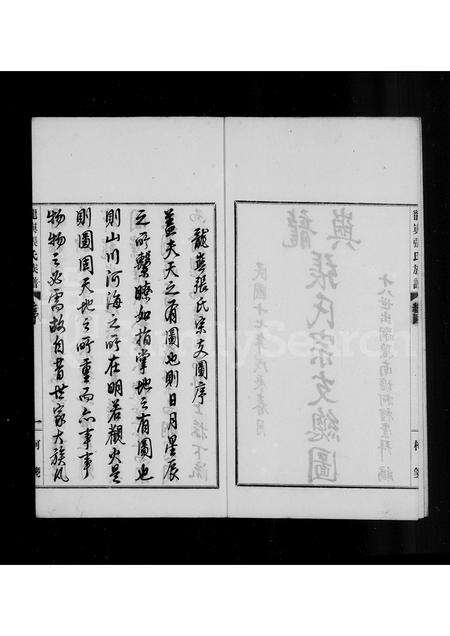 龍嶴張氏宗支圖序
蓋夫天之有圖也則日月星辰
之所繫瞭如指掌地之有圖也
則山川河海之所在明若觀火是
則圖固天地之所重而亦事事
物物之必需故自昔世家大族凡
嶴龍
張氏宗支總圖
民國十七年戊辰春月
張氏族譜
FamilySearch